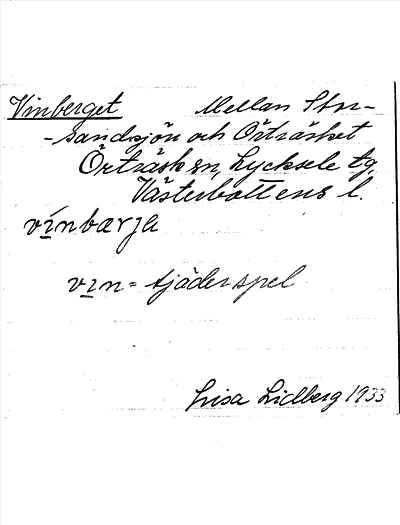 Vinberget Mellan Stor-
-sandsjön och Örträsket
Örträsk sn, Lycksele tg,
Västerbottens l.
vinbærja
vin = tjäderspel
Lisa Lidberg 1933